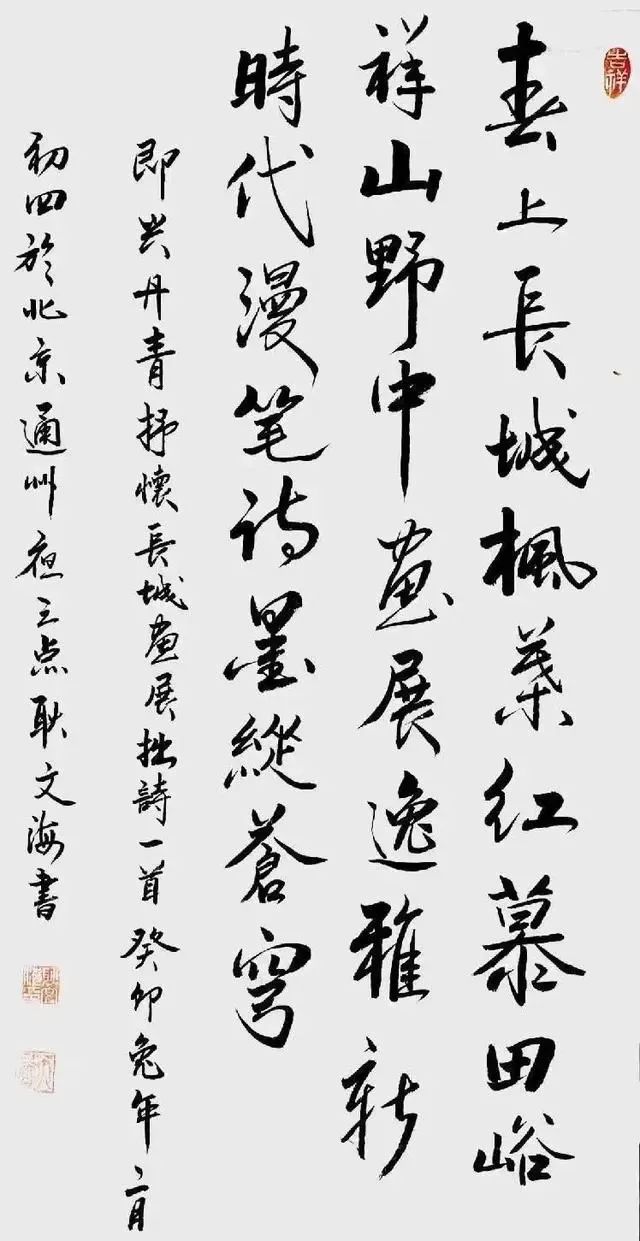 吉祥
春上長城枫葉红慕田峪
祥山野中画展逸雅新
時代漫笔诗墨縱蒼穹
即兴丹青抒懷長城画展拙詩一首癸卯兔年二月
初四於北京通州夜三点耿文海書